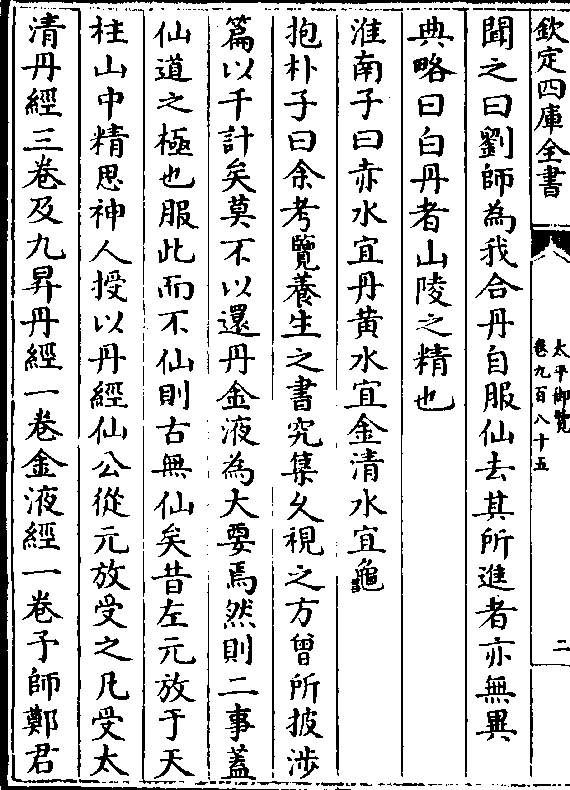 欽定四庫全書
太平御覽
卷九百八十五
二
聞之曰劉師為我合丹自服仙去其所進者亦無異
典略曰白丹者山陵之精也
淮南子曰赤水宜丹黄水宜金清水宜龜
抱朴子曰余考覽養生之書究集久視之方曾所披涉
篇以千計矣莫不以還丹金液為大要焉然則二事蓋
仙道之極也服此而不仙則古無仙矣昔左元放于天
柱山中精思神人授以丹經仙公從元放受之凡受太
清丹經三卷及九昇丹經一卷金液經一卷予師鄭君